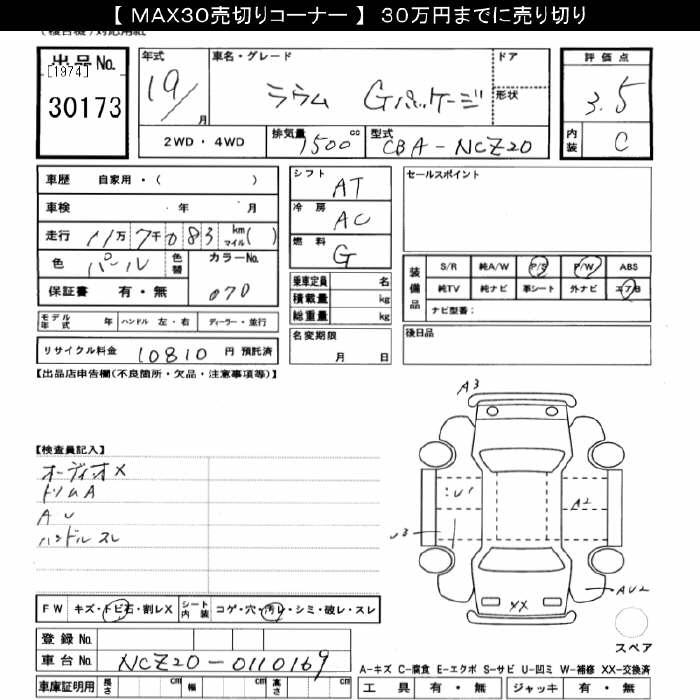 【 MAX30売切りコーナー 】 30万円までに売り切り
出品No.
[1974]
30173
年式 19/ 月
車名・グレード ラウム Gパッケージ
ドア
形状
評価点 3.5
内装 C
2WD・4WD
排気量 1500 cc
型式 CBA-NCZ20
車歴 自家用・( )
車検 ・ 年 ・ 月
走行 11万7千083 km マイル( )
色 パール 色替 カラーNo. 070
保証書 有・無
モデル年式 年 ハンドル 左・右 ディーラー・並行
リサイクル料金 10810 円 預託済
シフト AT
冷房 AC
燃料 G
乗車定員 名
積載量 kg
総重量 kg
名変期限 月 日
セールスポイント
装備品 S/R 純A/W P/S P/W ABS
純TV 純ナビ 革シート 外ナビ エアB
ナビ型番:
後日品
【出品店申告欄(不良箇所・欠品・注意事項等)】
【検査員記入】
オーディオX
トリムA
AU
ハンドルスレ
A3
U1
A2
U3
AU2
XX
スペア
FW キズ・トビ石・割レX
シート内装 コゲ・穴・汚レ・シミ・破レ・スレ
登録No.
車台No. NCZ20-0110169
車庫証明用 長さ cm 幅 cm 高さ cm
A-キズ C-腐食 E-エクボ S-サビ U-凹ミ W-補修 XX-交換済
工具 有・無 ジャッキ 有・無